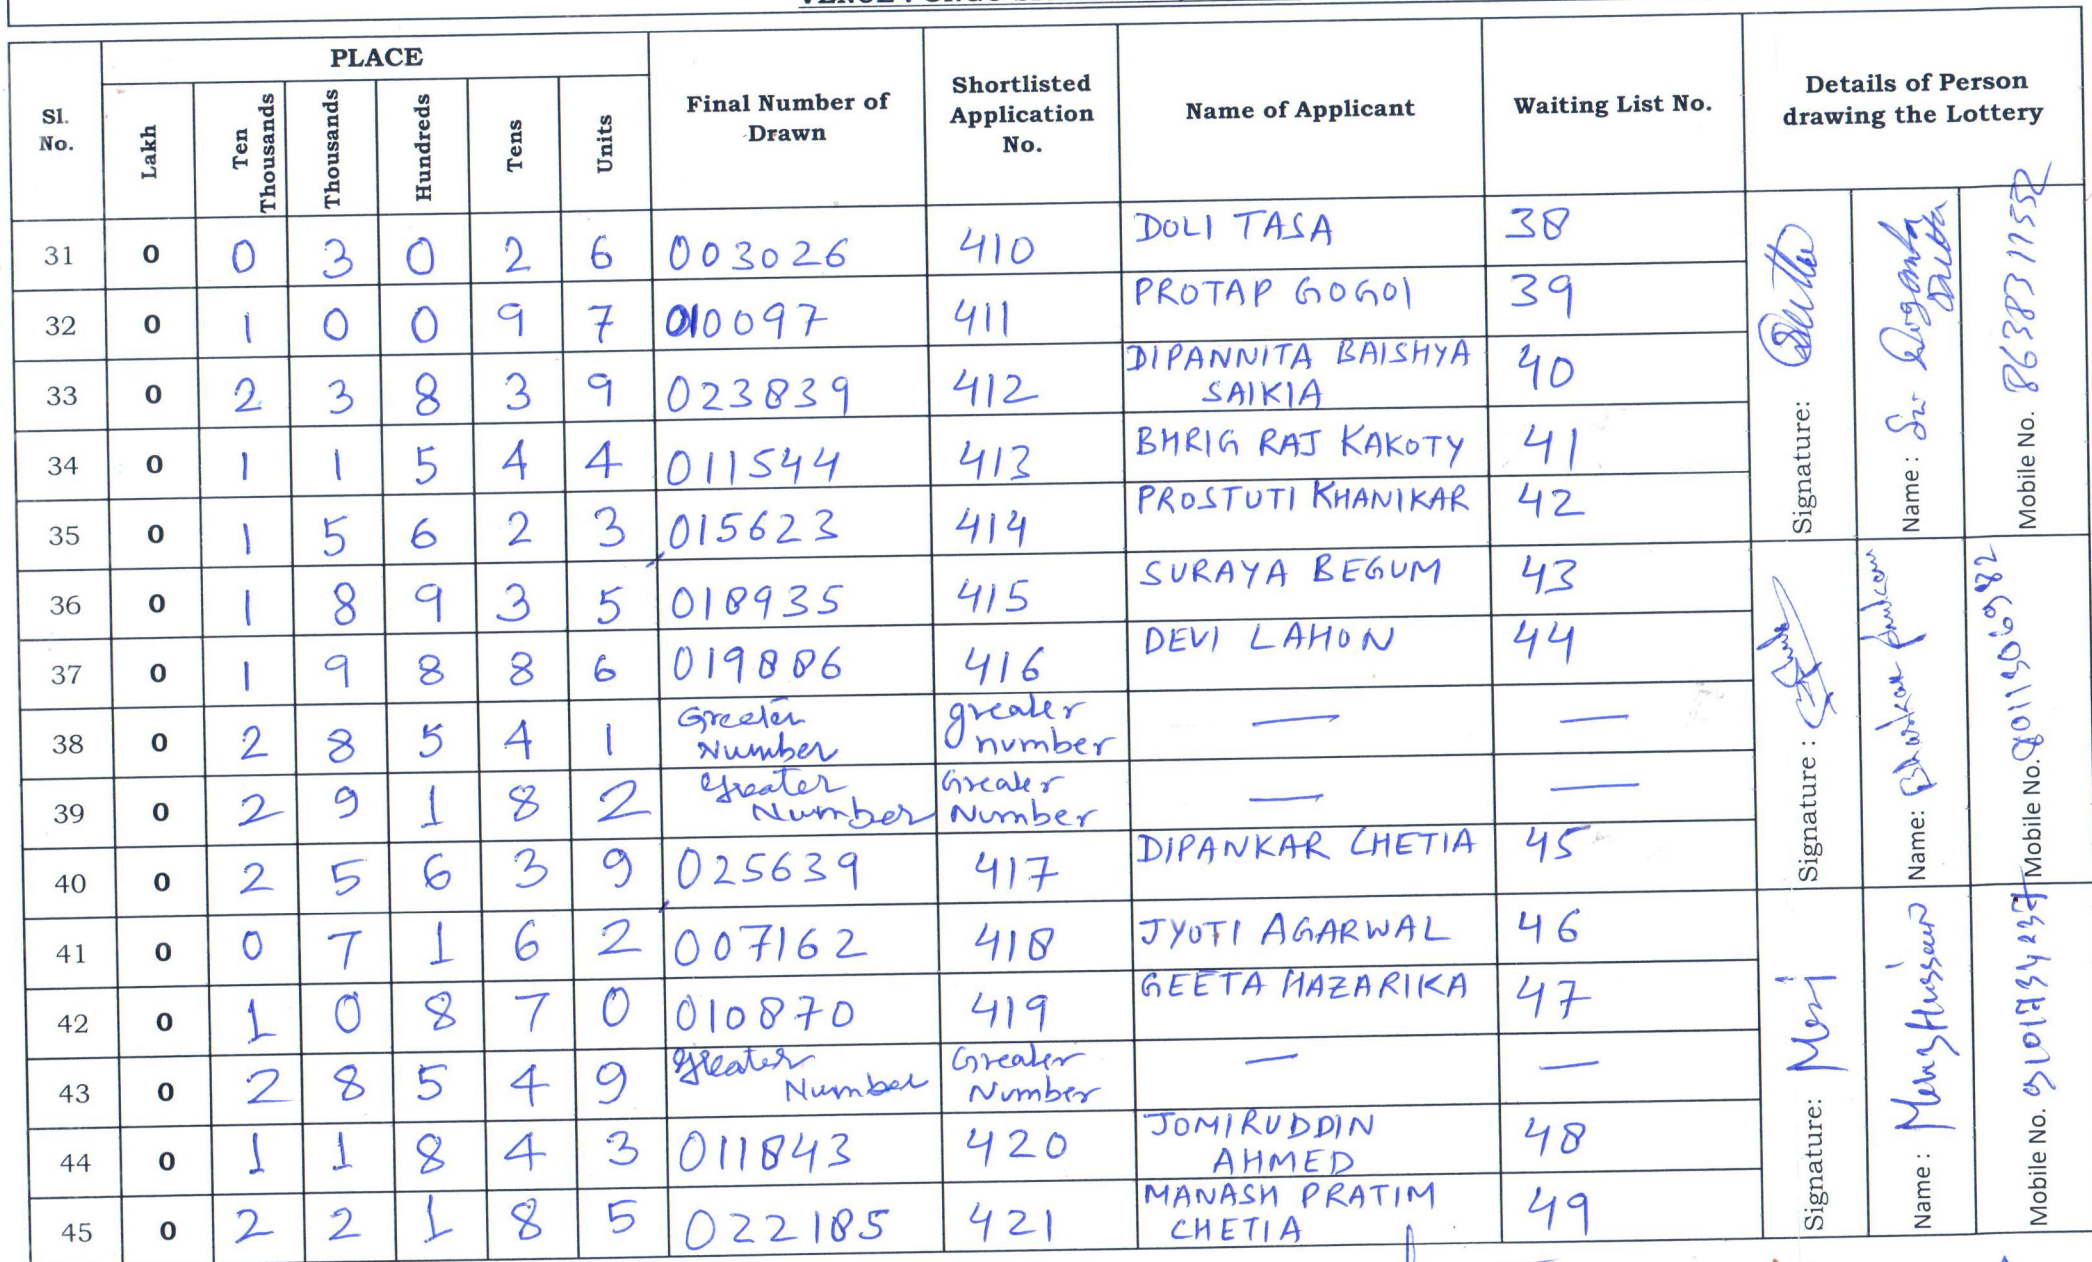 PLACE
Sl. No.
Lakh
Ten Thousands
Thousands
Hundreds
Tens
Units
Final Number of Drawn
Shortlisted Application No.
Name of Applicant
Waiting List No.
Details of Person drawing the Lottery
31 0 0 3 0 2 6 003026 410 DOLI TASA 38
32 0 1 0 0 9 7 010097 411 PROTAP GOGOI 39
33 0 2 3 8 3 9 023839 412 DIPANNITA BAISHYA SAIKIA 40
34 0 1 1 5 4 4 011544 413 BHRIG RAJ KAKOTY 41
35 0 1 5 6 2 3 015623 414 PROSTUTI KHANIKAR 42
36 0 1 8 9 3 5 018935 415 SURAYA BEGUM 43
37 0 1 9 8 8 6 019886 416 DEVI LAHON 44
38 0 2 8 5 4 1 Greater Number greater number — —
39 0 2 9 1 8 2 Greater Number Greater Number — —
40 0 2 5 6 3 9 025639 417 DIPANKAR CHETIA 45
41 0 0 7 1 6 2 007162 418 JYOTI AGARWAL 46
42 0 1 0 8 7 0 010870 419 GEETA HAZARIKA 47
43 0 2 8 5 4 9 Greater Number Greater Number — —
44 0 1 1 8 4 3 011843 420 JOMIRUDDIN AHMED 48
45 0 2 2 1 8 5 022185 421 MANASH PRATIM CHETIA 49
Signature:
Name :
Mobile No.
Signature :
Name: Bhaskar
Mobile No.
Signature:
Name : Hussain
Mobile No.